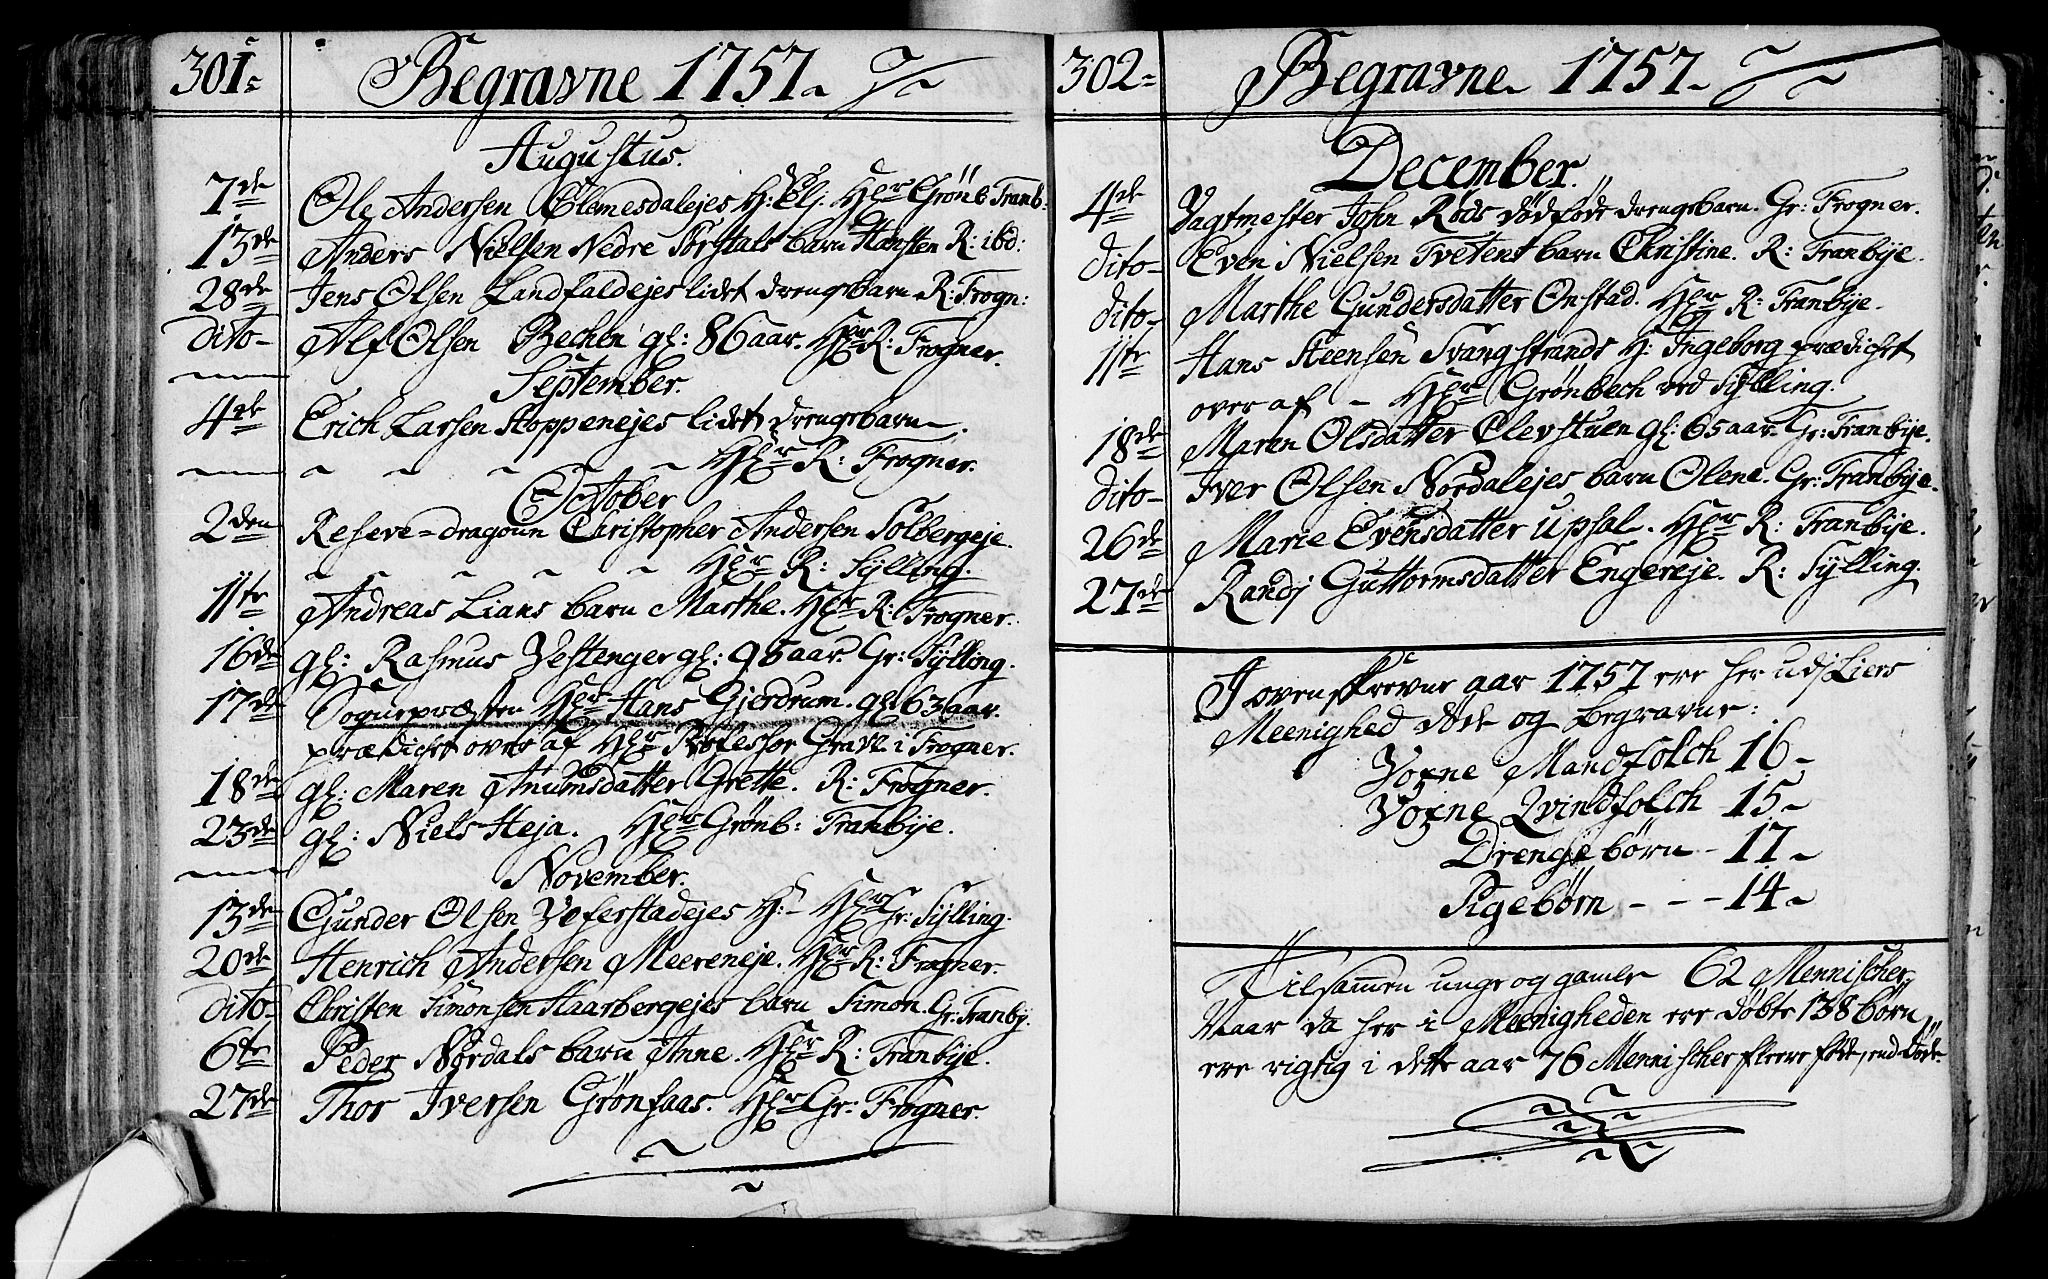 301.
Begravne 1757.
Augustus.
7de Ole Andersen Clemesdalejes H: Elj. Hr Grönb Tranb:
13de Anders Nielsen Nedre Sörstals barn Hansten R: ibd:
28de Jens Olsen Landfaldejes lidet drengebarn R: Frogn:
dito- Alf Olsen Bechen gl: 86 aar. Hr R: Frogner.
September.
4de Erich Larsen Stoppenejes lidet drengebarn.
Hr R: Frogner.
October
2den Reserve-dragoun Christopher Andersen Solbergeje.
Hr R: Sylling.
11te Andreas Lians barn Marthe. Hr R: Frogner.
16de gl: Rasmus Vestenger gl: 95 aar. Gr: Sylling.
17de Sognepræsten Hr Hans Gjerdrum. gl: 63 aar.
prædichet over af Hr Professor Grave i Frogner.
18de gl: Maren Anumsdatter Grette. R: Frogner.
23de gl: Niels Heja. Hr Grönb: Tranbije.
November.
13de Gunder Olsen Voferstadejes H:- Hr Gr: Sylling.
20de Henrich Andersen Meereneje. Hr R: Frogner.
dito- Christen Simonsen Haarbergejes barn Simon. Gr: Tranby.
6te Peder Nordals barn Anne. Hr R: Tranbije.
27de Thor Iversen Grönsaas. Hr Gr: Frogner.
302.
Begravne 1757.
December.
4de Vagtmester John Röds dödföde drengebarn. Gr: Frogner.
dito- Even Nielsen Tvetens barn Christine. R: Tranbije.
dito- Marthe Gundersdatter Onstad. Hr R: Tranbije.
11te Hans Steensen Svangstrands H: Ingeborg prædichet
over af - Hr Grönbech ved Sylling.
18de Maren Olsdatter Elevstuen gl: 65 aar. Gr: Tranbije.
dito- Iver Olsen Nordalejes barn Olene. Gr: Tranbije.
26de Marie Evensdatter Upsal. Hr R: Tranbije.
27de Randj Guttormsdatter Engereje. R: Sylling.
I ovenskrevne aar 1757 ere her udj Liers
Meenighed döde og begravne:
Voxne Mandfolch 16
Voxne Qvindfolch 15
Drengebörn - 17
Pigebörn - - - 14
Tilsammen unge og gamle 62 Mennischer,
Maar da her i Meenigheden ere döbte 138 börn,
ere rigtig i dette aar 76 Mennischer fleere föde, end döde